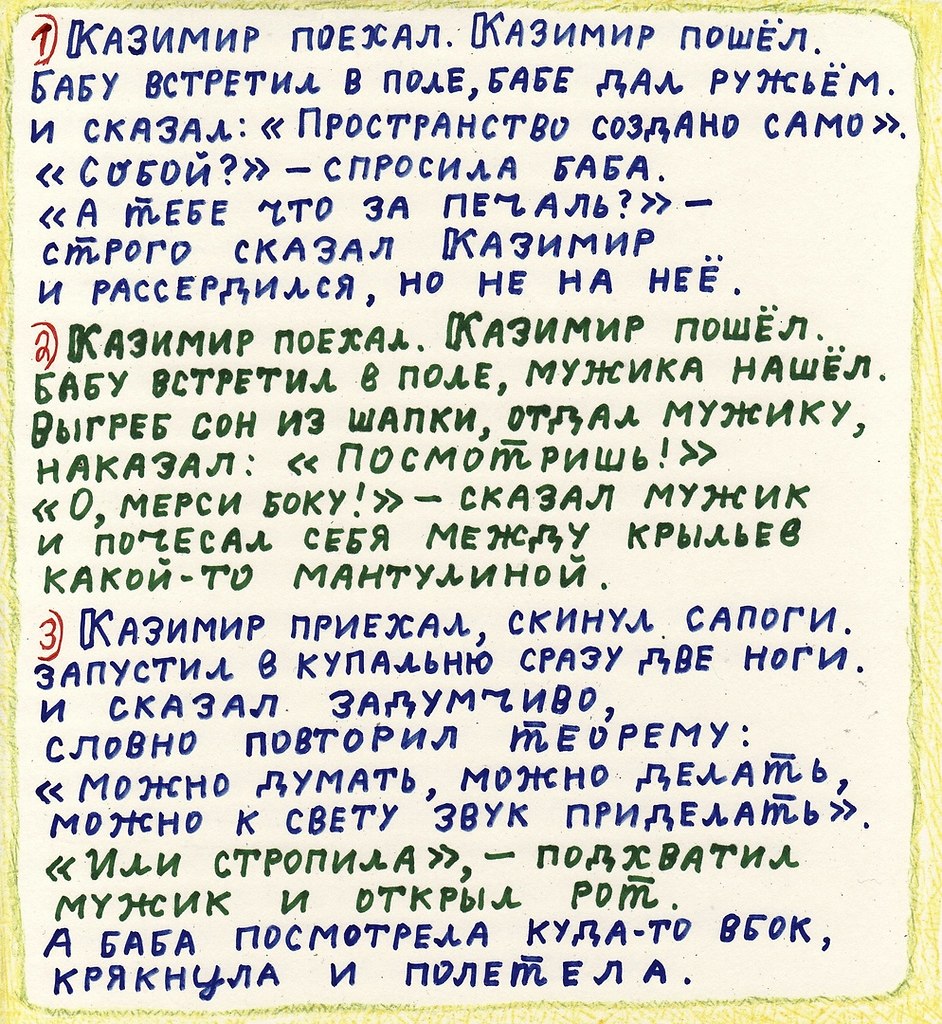 1) Казимир поехал. Казимир пошёл.
Бабу встретил в поле, бабе дал ружьём.
и сказал: «Пространство создано само».
«Собой?» – спросила баба.
«А тебе что за печаль?» –
строго сказал Казимир
и рассердился, но не на неё.
2) Казимир поехал. Казимир пошёл.
Бабу встретил в поле, мужика нашёл.
Выгреб сон из шапки, отдал мужику,
наказал: «Посмотришь!»
«О, мерси боку!» – сказал мужик
и почесал себя между крыльев
какой-то мантулиной.
3) Казимир приехал, скинул сапоги.
Запустил в купальню сразу две ноги.
и сказал задумчиво,
словно повторил теорему:
«можно думать, можно делать,
можно к свету звук приделать».
«Или стропила», – подхватил
мужик и открыл рот.
А баба посмотрела куда-то вбок,
крякнула и полетела.